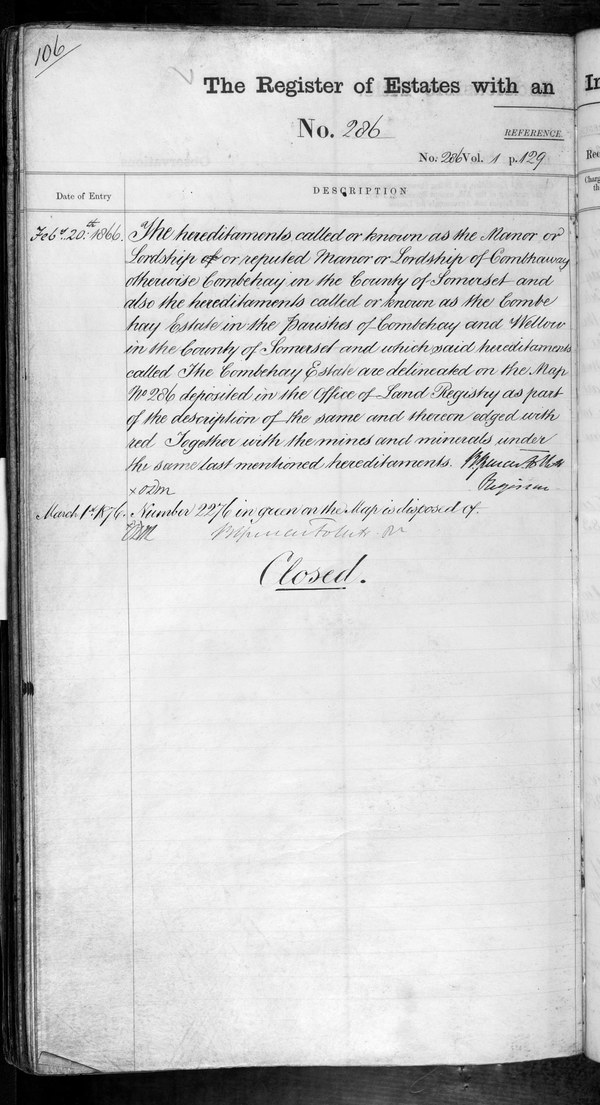 106
The Register of Estates with an
No. 286
REFERENCE.
No. 286 Vol. 1 p. 129
Date of Entry
DESCRIPTION
Feby. 20th. 1866. The hereditaments called or known as the Manor or
Lordship of or reputed Manor or Lordship of Comthaway
otherwise Combehay in the County of Somerset and
also the hereditaments called or known as the Combe
hay Estate in the Parishes of Combehay and Wellow
in the County of Somerset and which said hereditaments
called The Combehay Estate are delineated on the Map
No 286 deposited in the Office of Land Registry as part
of the description of the same and thereon edged with
red Together with the mines and minerals under
the same last mentioned hereditaments.
Registrar
March 1st. 1876. Number 2276 in green on the Map is disposed of.
Closed.
In
Rec
Charg
th